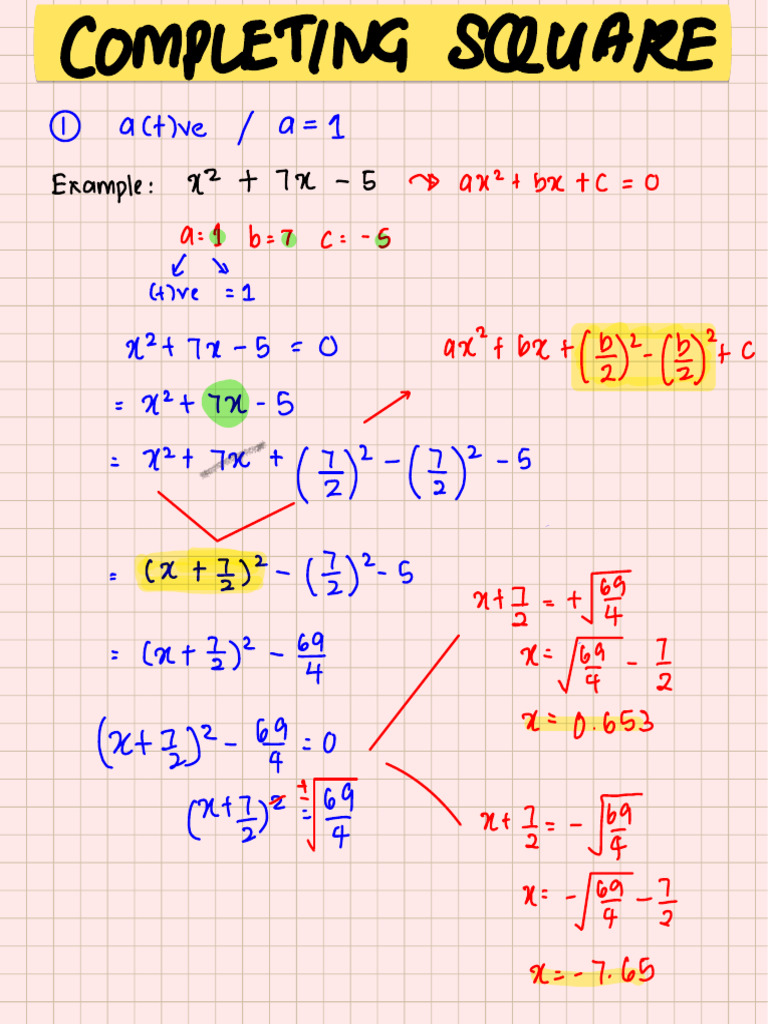 COMPLETING SQUARE
① a(+)ve / a = 1
Example: x² + 7x - 5 ⤳ ax² + bx + c = 0
a = 1 b = 7 c = -5
↙ ↘
(+)ve = 1
x² + 7x - 5 = 0
ax² + bx + (b/2)² - (b/2)² + c
= x² + 7x - 5
= x² + 7x + (7/2)² - (7/2)² - 5
= (x + 7/2)² - (7/2)² - 5
= (x + 7/2)² - 69/4
(x + 7/2)² - 69/4 = 0
(x + 7/2)² = ±√(69/4)
x + 7/2 = +√(69/4)
x = √(69/4) - 7/2
x = 0.653
x + 7/2 = -√(69/4)
x = -√(69/4) - 7/2
x = -7.65